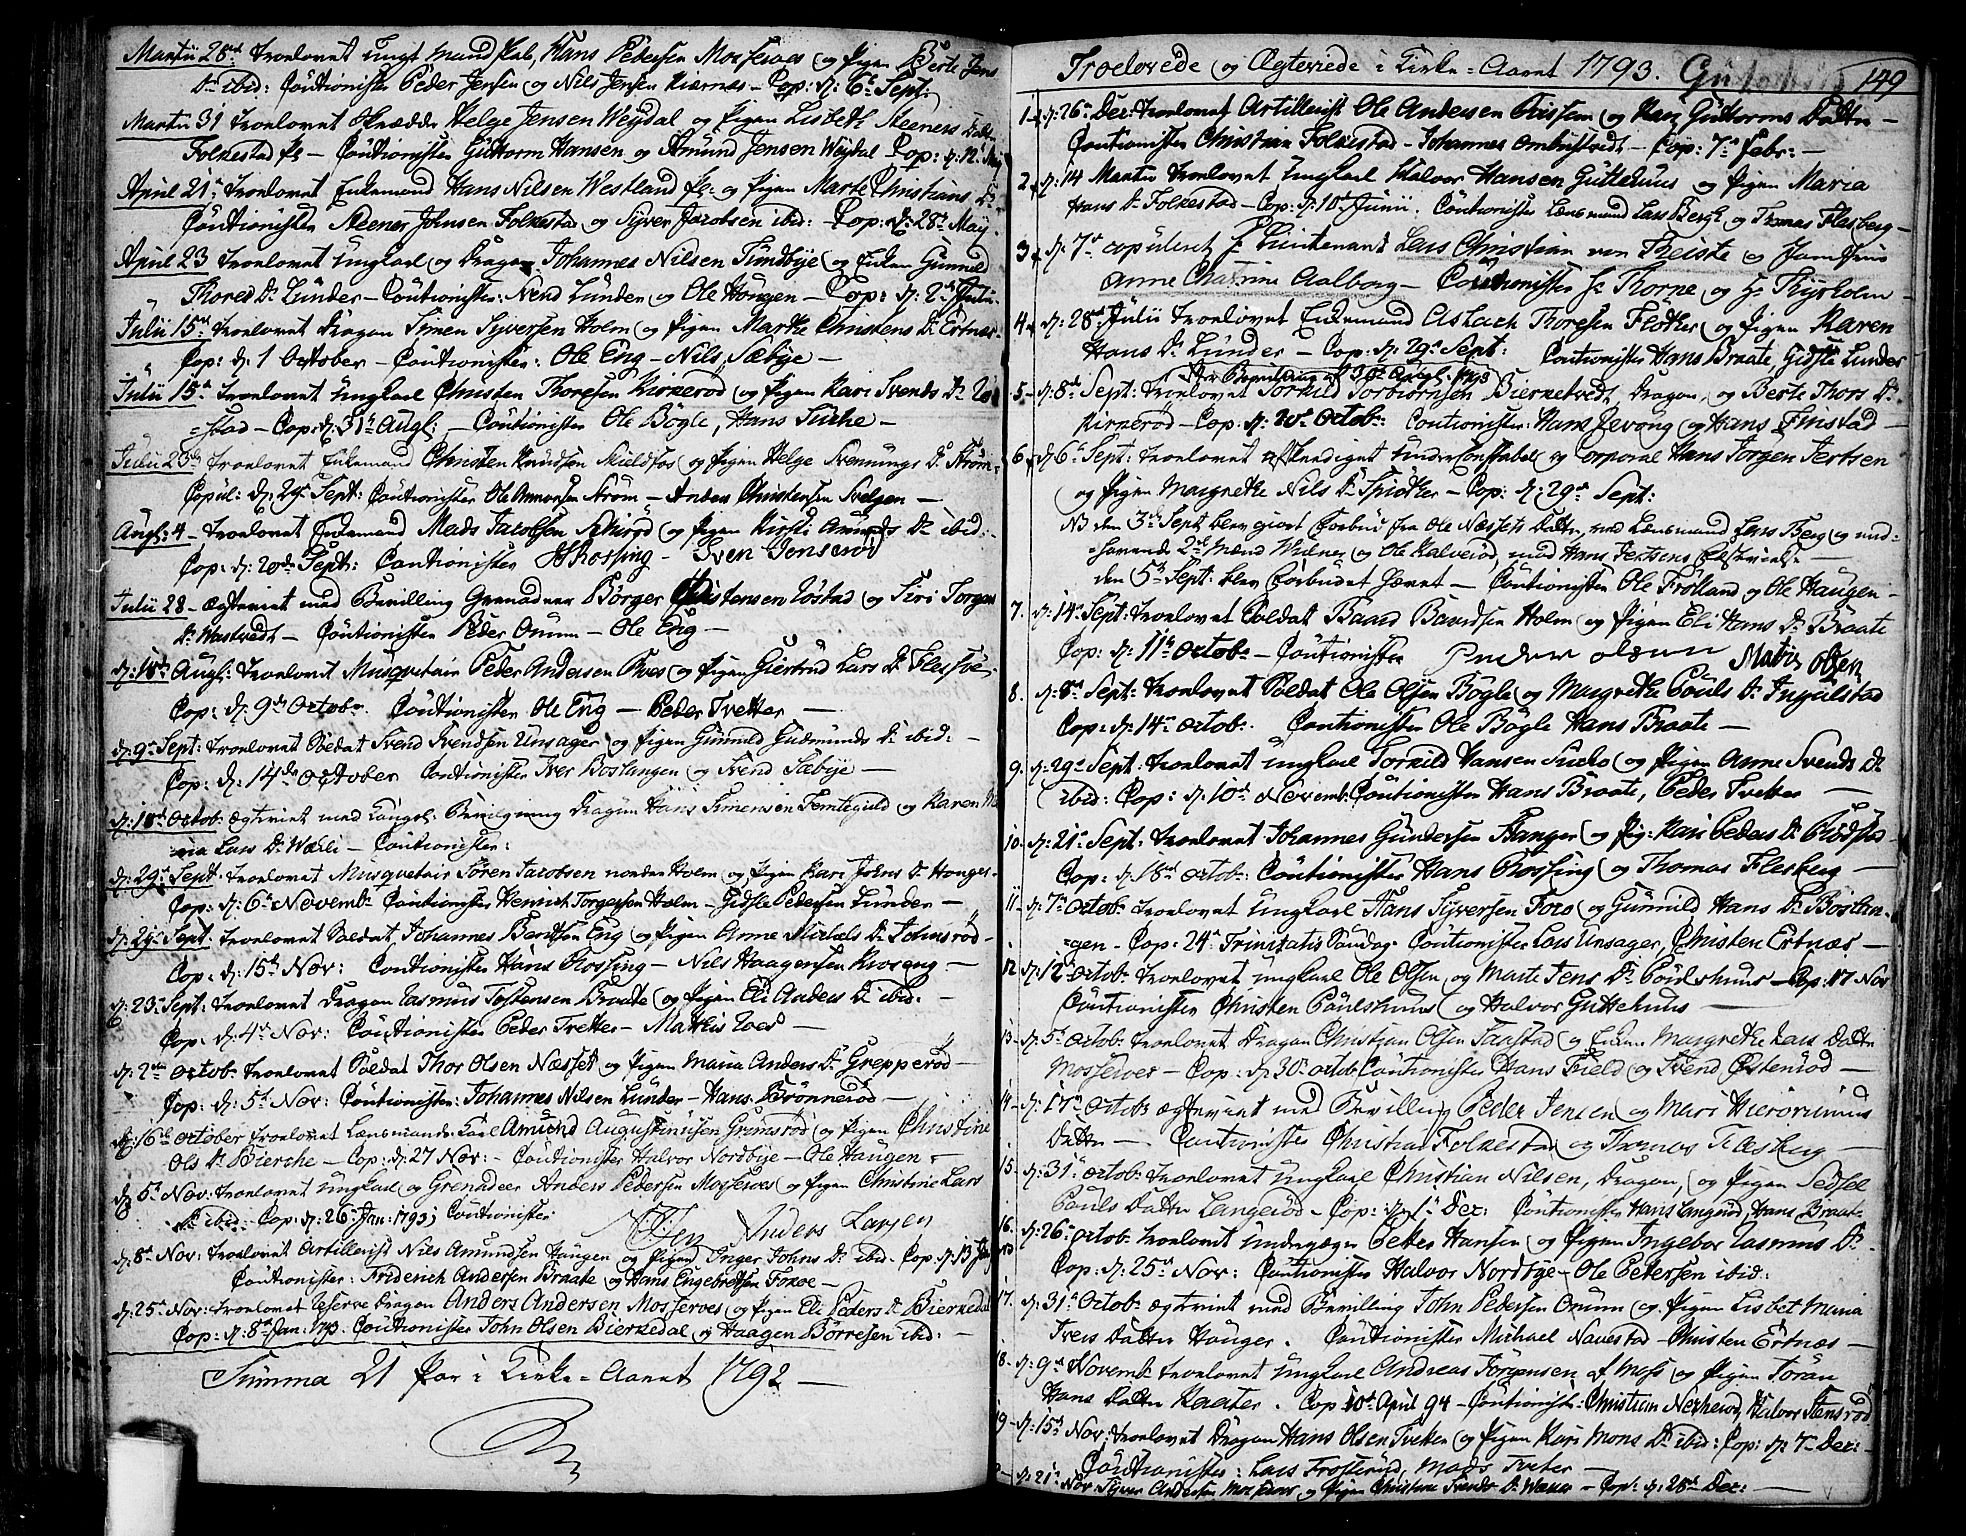 Martii 28de troelovet ungt mandskab, Hans Pedersen Mosseroes og Pigen Berte Jens
Dr ibid: Cautionister Peder Jensen og Nils Jensen Kiærnæs – Cop: d: 6te Sept:
Martii 31 troelovet Skrædder Helge Jensen Weydal og Pigen Lisbeth Steeners Datter
Folkestad Ej – Cautionister Guttorm Hansen og Amund Jensen Weydal Cop: d: 12te May
April 21de troelovet Enkemand Hans Nilsen Westland og Pigen Marte Christians Dr
Cautionister Steener Johnsen Folkestad og Syver Jacobsen ibid: Cop: d: 28de May.
April 23 troelovet Ungkarl og Dragon Johannes Nilsen Sundbye og Enken Gunnild
Thores Dr Lunder – Cautionister: Svend Lunder og Ole Haugen – Cop: d: 2de Julii
Julii 15de troelovet Dragon Simen Syversen Holm og Pigen Marthe Christens Dr Ertnæs
Cop: d: 1 October – Cautionister: Ole Eng – Nils Sæbye –
Julii 15de troelovet Ungkarl Christen Thoresen Kirkerød og Pigen Kari Svends Dr
=stad – Cop: d: 31te Augl: – Cautionister Ole Bøgle, Hans Sucke –
Julii 23de troelovet Enkemand Christen Knudsen og Pigen Helge Svennungs Dr Strøm
Copul: d: 29de Sept: Cautionister Ole Strøm – Anders Christensen –
Augl: 4 – troelovet Enkemand Mads Jacobsen og Pigen Kirsti Amunds Dr ibid:
Cop: d: 20de Sept: Cautionister H Rossing – Sven Jenserød
Julii 28 – ægteviet med Bevilling Grenadeer Børger Christensen og Siri Torgers
Dr Wastvedt – Cautionister Peder Onum – Ole Eng –
d: 18de Augl: troelovet Musquetair Peder Andersen og Pigen Giertrud Lars Dr
Cop: d: 9de Octobr. Cautionister Ole Eng – Peder Tvetter –
d: 9de Sept: troelovet Soldat Svend Svendsen Unsager og Pigen Gunnild Gudmunds Dr ibid: –
Cop: d: 14de October Cautionister Iver Boslangen og Svend Sæbye –
d: 10de Octob: ægteviet med Kongel: Bevilgning Dragon Hans Simensen og Karen Ma
ria Lars Dr Wærli – Cautionister:
d: 29de Sept troelovet Musquetair Søren Jacobsen nordre Holm og Pigen Kari Johns Dr Hauger
Cop: d: 6te Novembr Cautionister Henrich Torgersen Holm – Gidsle Pedersen Lunder –
d: 29de Sept – troelovet Soldat Johannes Bentsen Eng og Pigen Anne Michels Dr Johnsrød –
Cop: d: 15de Nov: Cautionister Hans Rossing – Nils Haagensen Kroseng –
d: 23de Sept: troelovet Dragon Rasmus Tostensen Braate og Pigen Eli Anders Dr ibid: –
Cop: d: 4de Nov: Cautionister Peder Tvetter – Mathis Roed –
d: 2den Octobr troelovet Soldat Thor Olsen Næsset og Pigen Maria Anders Dr Grepperød
Cop: d: 5te Nov: Cautionister: Johannes Nilsen Lunder – Hans Brønnerød –
d: 16de October troelovet Lænsmands Karl Amund Augustinusen Grimsrød og Pigen Christine
Ols Dr Bierche – Cop: d: 27 Nov: – Cautionister Halvor Nordbye – Ole Haugen –
d: 5te Nov: troelovet Ungkarl og Grenadeer Anders Pedersen Mosseroes og Pigen Christine Lars
Dr ibid: Cop: d: 26 Jan: 1793; Cautionister: Anders Larsen
d: 8de Nov: troelovet Artillerist Nils Amundsen Haugen og Pigen Inger Johns Dr ibid. Cop: d: 13 Jan
Cautionister: Friderich Andersen Braate og Hans Engebretsen Foxoe –
d: 25de Nov: troelovet Reserve Dragon Anders Andersen Mosseroes og Pigen Eli Peders Dr Bierkedal
Cop: d: 8de Jan: 1793. Cautionister John Olsen Bierkedal og Haagen Børresen ibid: –
Summa 21 Par i Kirke-Aaret 1792 –
Troelovede og Ægteviede i Kirke-Aaret 1793. 149
1. d: 26de Dec: troelovet Artillerist Ole Andersen og Kari Guttorms Datter –
Cautionister Christian Folkestad – Johannes Ombustvedt – Cop: 7de Febr: –
2. d: 14 Martii troelovet Ungkarl Halvor Hansen Guttehuus og Pigen Maria
Hans Dr Folkestad – Cop: d: 10de Junii. Cautionister Lænsmand Lars Bergh og Thomas Flesberg –
3. d: 7de copuleret Hr Lieutenant Lars Christian von Reiste og Jomfrue
Anne Chatrine Aalborg – Cautionister Hr Thorne og Hr Thysholm –
4. d: 28de Julii troelovet Enkemand Aslach Thoresen Fløther og Pigen Karen
Hans Dr Lunder – Cop: d: 29de Sept: Cautionister Hans Braate, Gidsle Lunder
5. d: 8de Sept: troelovet Torkild Torbiørnsen Bierketvedt, Dragon, og Berte Thors Dr
Kirkerød – Cop: d: 20de Octob: Cautionister: Hans Revong og Hans Finstad –
6. d: 6te Sept: troelovet afskediget Underconstabel og Corporal Hans Jørgen Jertsen
og Pigen Margrethe Nils Dr Fløther – Cop: d: 29de Sept:
NB den 3de Sept blev giort Forbud fra Ole Næssets Datter, ved Lænsmand Lars Berg og med-
havende 2de Mænd Wilner og Ole Kalverød, mod Hans Jertsens
den 5te Sept: blev Forbudet hævet – Cautionister Ole Frølland og Ole Haugen –
7. d: 14de Sept: troelovet Soldat Baard Baardsen Holm og Pigen Eli Hans Dr Braate
Cop: d: 11te Octobr – Cautionister Peder olsen Matis Olsen
8. d: 8de Sept: troelovet Soldat Ole Olsen Bøgle og Margrethe Pouls Dr Ingulstad
Cop: d: 14de Octob: Cautionister Ole Bøgle Hans Braate –
9. d: 29de Sept: troelovet Ungkarl Torkild Hansen Sucke og Pigen Anne Svends Dr
ibid: Cop: d: 10de Novemb: Cautionister Hans Braate, Peder Tvetter –
10. d: 21de Sept: troelovet Johannes Gundersen Stanger og Pig: Kari Peders Dr
Cop: d: 18de Octob: Cautionister Hans Rossing og Thomas Flesberg –
11. d: 7de Octob: troelovet Ungkarl Hans Syversen Foxo og Gunnild Hans Dr Boslan-
=gen – Cop: 24de Trinitatis Søndag. Cautionister Lars Unsager, Christen Ertnæs –
12. d: 12te Octob: troelovet Ungkarl Ole Olsen og Marte Jens Dr Poulshuus – Cop: 17 Nov
Cautionister Christen Paulshuus og Halvor Guttehuus –
13. d: 5te Octob: troelovet Dragon Christian Olsen Taastad og Enken Margrethe Lars Datter
Mosseroes – Cop: d: 30te Octob: Cautionister Hans Field og Svend Østenrød –
14. d: 17de Octob: ægteviet med Bevilling Peder Jensen og Mari Hieronimus
Datter – Cautionister Christian Folkestad og Thomas Flesberg –
15. d: 31te Octob: troelovet Ungkarl Christian Nilsen, Dragon, og Pigen Sedsel
Pouls Datter Langerød – Cop: d: 1te Dec: Cautionister Hans Langerød, Hans Braate
16. d: 26de Octob: troelovet Underjæger Peder Hansen og Pigen Ingebor Rasmus Dr
Cop: d: 25de Nov: Cautionister Halvor Nordbye – Ole Petersen ibid:
17. d: 31te Octob: ægteviet med Bevilling John Pedersen Onum og Pigen Lisbet Maria
Ivers Datter Hauger. Cautionister Michael Navestad – Christen Ertnæs –
18. d: 9de Novemb: troelovet Ungkarl Andreas Jørgensen af Moss og Pigen Jøran
Hans Datter Kaater. Cop 10de April 94 – Cautionister: Christian Nerherød, Halvor Stensrød
19. d: 15de Nov: troelovet Dragon Hans Olsen Tveter og Pigen Kari Mons Dr ibid: Cop: d: 7de Dec: –
Cautionister: Lars Frosterud, Mads Tveter –
d: 21de Nov Syver Andersen Mosseroes og Pigen Christine Svends Dr – Cop: d: 28de Dec: –